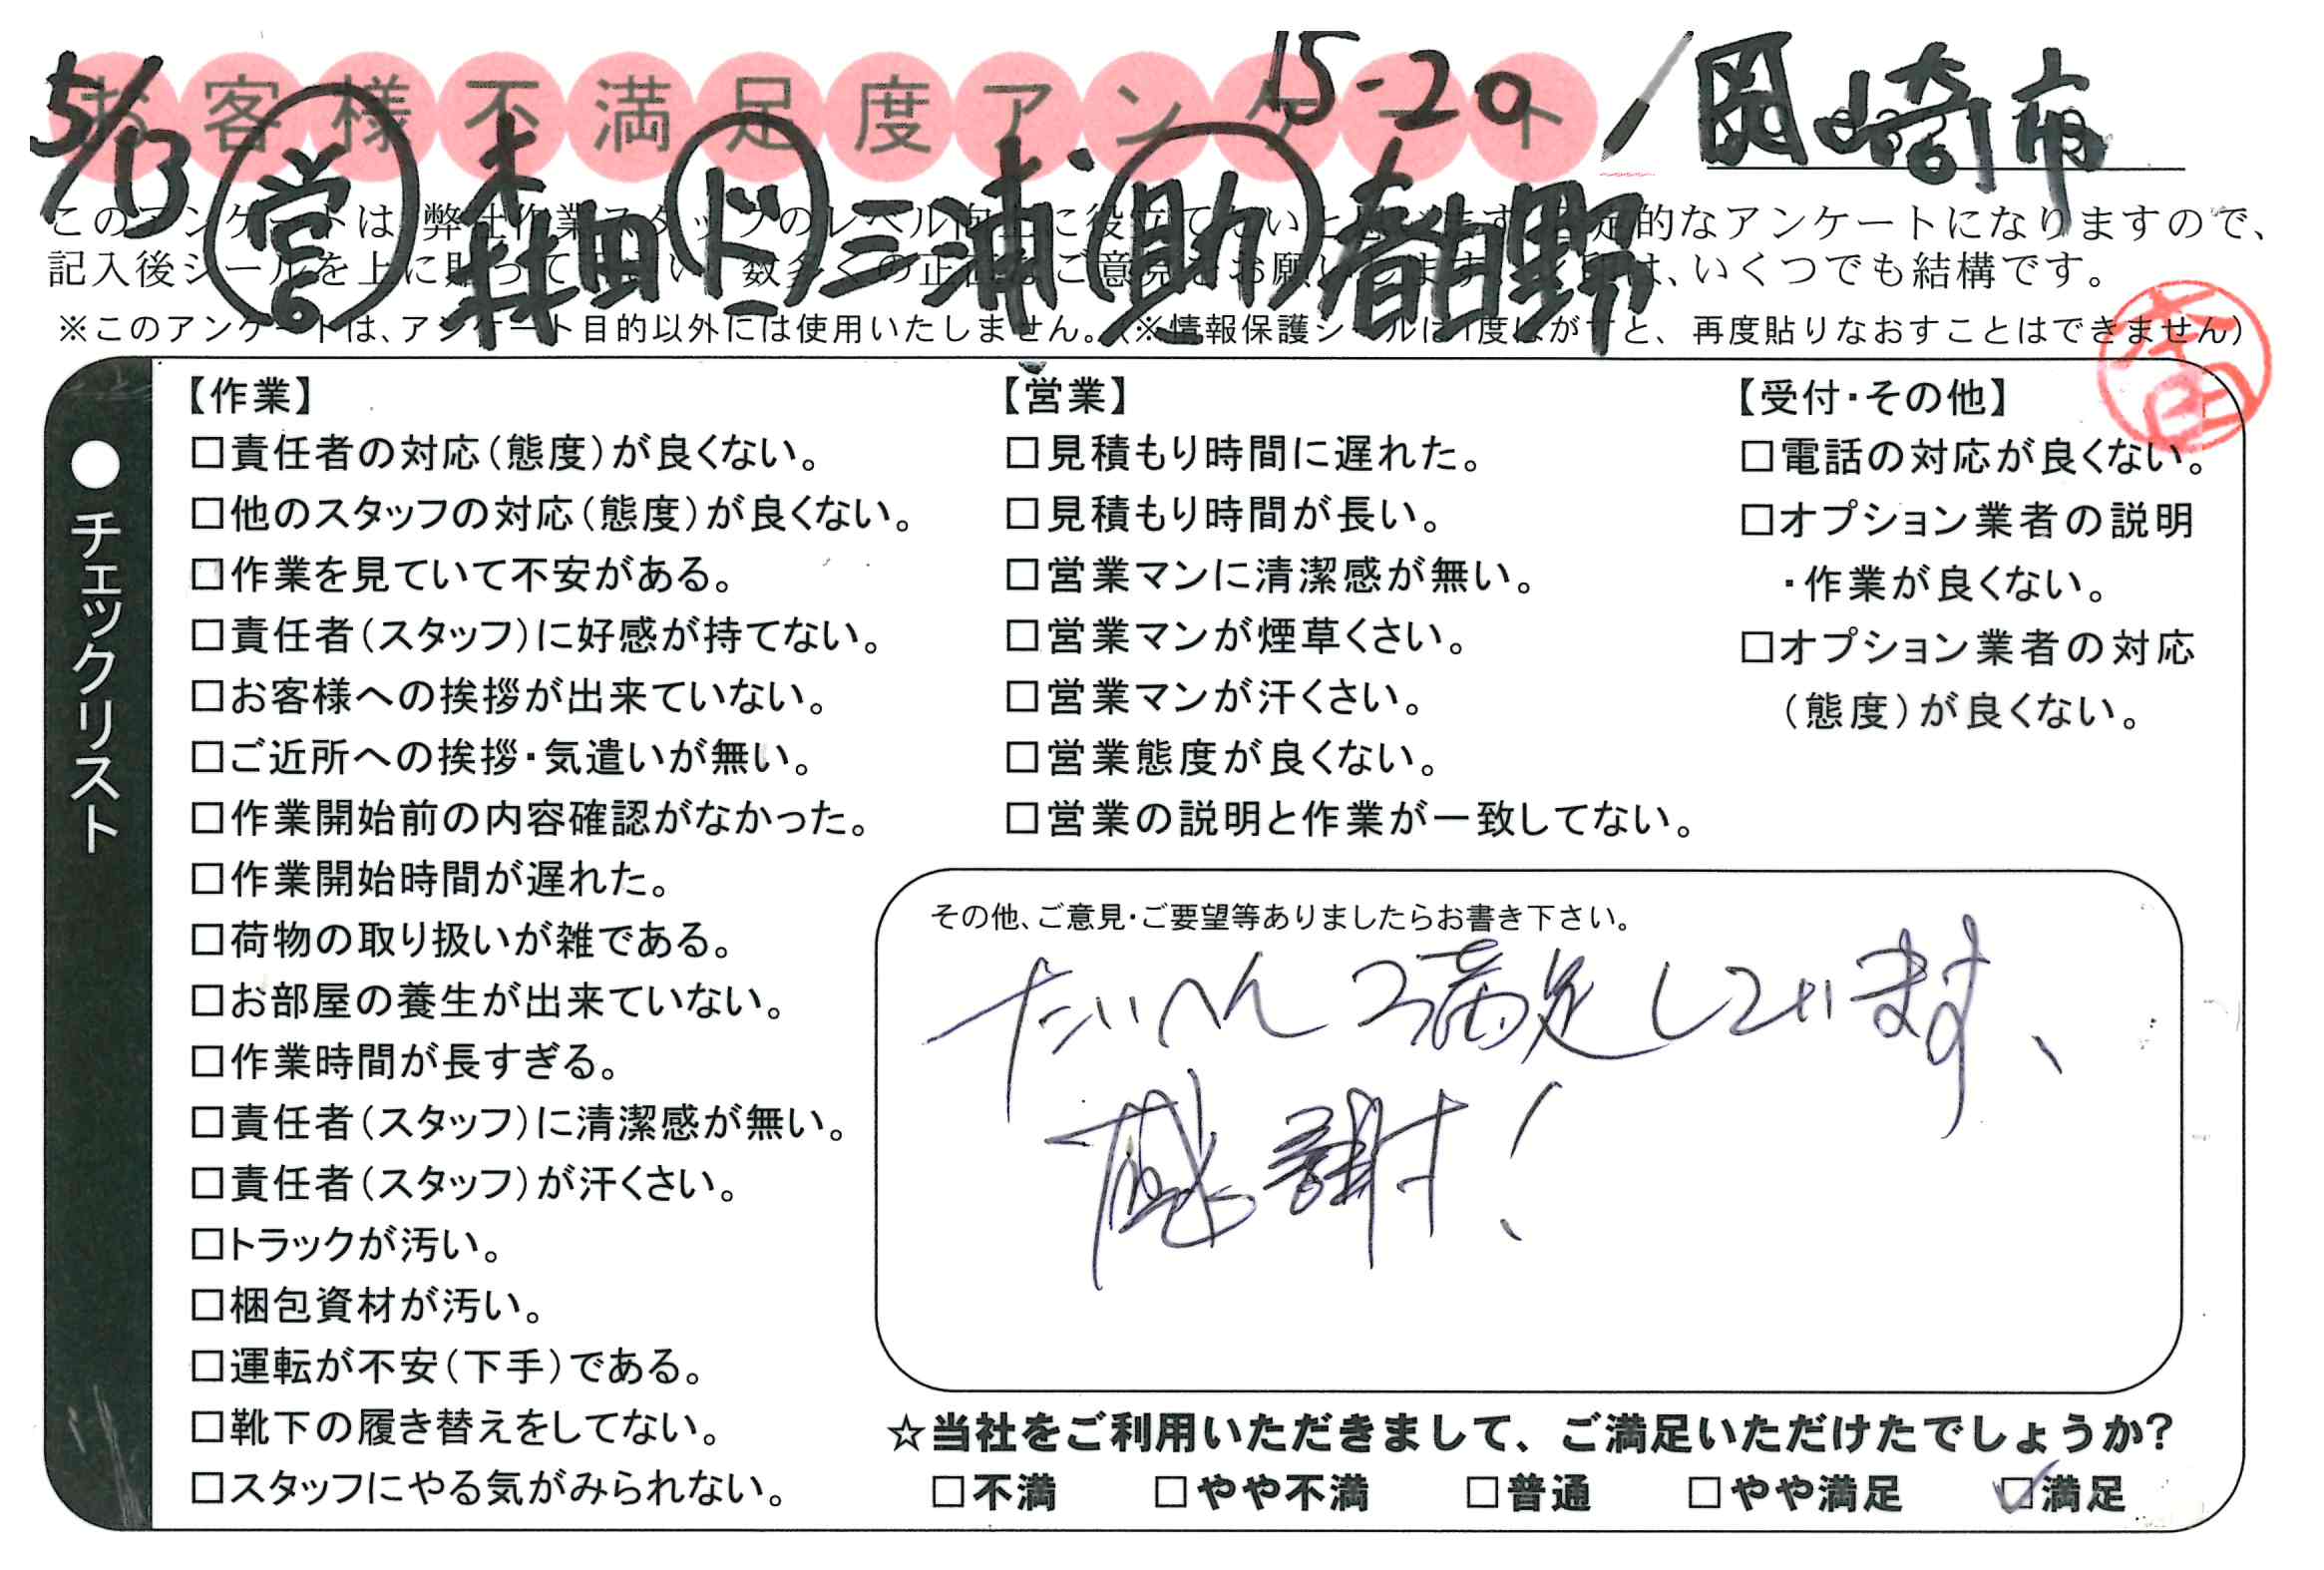 お客様不満足度アンケート
5/13 15-20 / 岡崎市
営 森田 ド 三浦 助 春日野
このアンケートは、弊社作業スタッフのレベル向上に役立て 的なアンケートになりますので、
記入後シールを上に貼って 数多くの正直なご意見をお願いします は、いくつでも結構です。
※このアンケートは、アンケート目的以外には使用いたしません。（※情報保護シールは1度はがすと、再度貼りなおすことはできません）
●チェックリスト
【作業】
□責任者の対応（態度）が良くない。
□他のスタッフの対応（態度）が良くない。
□作業を見ていて不安がある。
□責任者（スタッフ）に好感が持てない。
□お客様への挨拶が出来ていない。
□ご近所への挨拶・気遣いが無い。
□作業開始前の内容確認がなかった。
□作業開始時間が遅れた。
□荷物の取り扱いが雑である。
□お部屋の養生が出来ていない。
□作業時間が長すぎる。
□責任者（スタッフ）に清潔感が無い。
□責任者（スタッフ）が汗くさい。
□トラックが汚い。
□梱包資材が汚い。
□運転が不安（下手）である。
□靴下の履き替えをしてない。
□スタッフにやる気がみられない。
【営業】
□見積もり時間に遅れた。
□見積もり時間が長い。
□営業マンに清潔感が無い。
□営業マンが煙草くさい。
□営業マンが汗くさい。
□営業態度が良くない。
□営業の説明と作業が一致してない。
【受付・その他】
□電話の対応が良くない。
□オプション業者の説明
・作業が良くない。
□オプション業者の対応
（態度）が良くない。
その他、ご意見・ご要望等ありましたらお書き下さい。
たいへん満足しています、
感謝！
☆当社をご利用いただきまして、ご満足いただけたでしょうか？
□不満 □やや不満 □普通 □やや満足 ☑満足